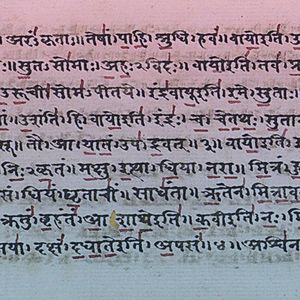 । अरंकृताः॥ तेषां। पाहि। श्रुधि। हवं॥ वायोइति। उ
ः॥ सुतसोमाः। अहःविदः॥ वायोइति। तव।
उरूची। सोमपीतये॥ इंद्रवायूइति। इमे। सुताः।
उशंति। हि॥ वायोइति। इंद्रः। च। चेतथः। सुता
तौ। आ। यातं। उप। द्रवत्॥३॥ वायोइति।
निःकृतं। मक्षु। इत्था। धिया। नरा॥ मित्रं।
धियं। घृताचीं। साधंता॥ ऋतेन। मित्राव
क्रतुं। बृहंतं। आशाथेइति॥ कवीइति। नः। मि
दक्षं। दधातेइति। अपसं॥४॥ अश्विना